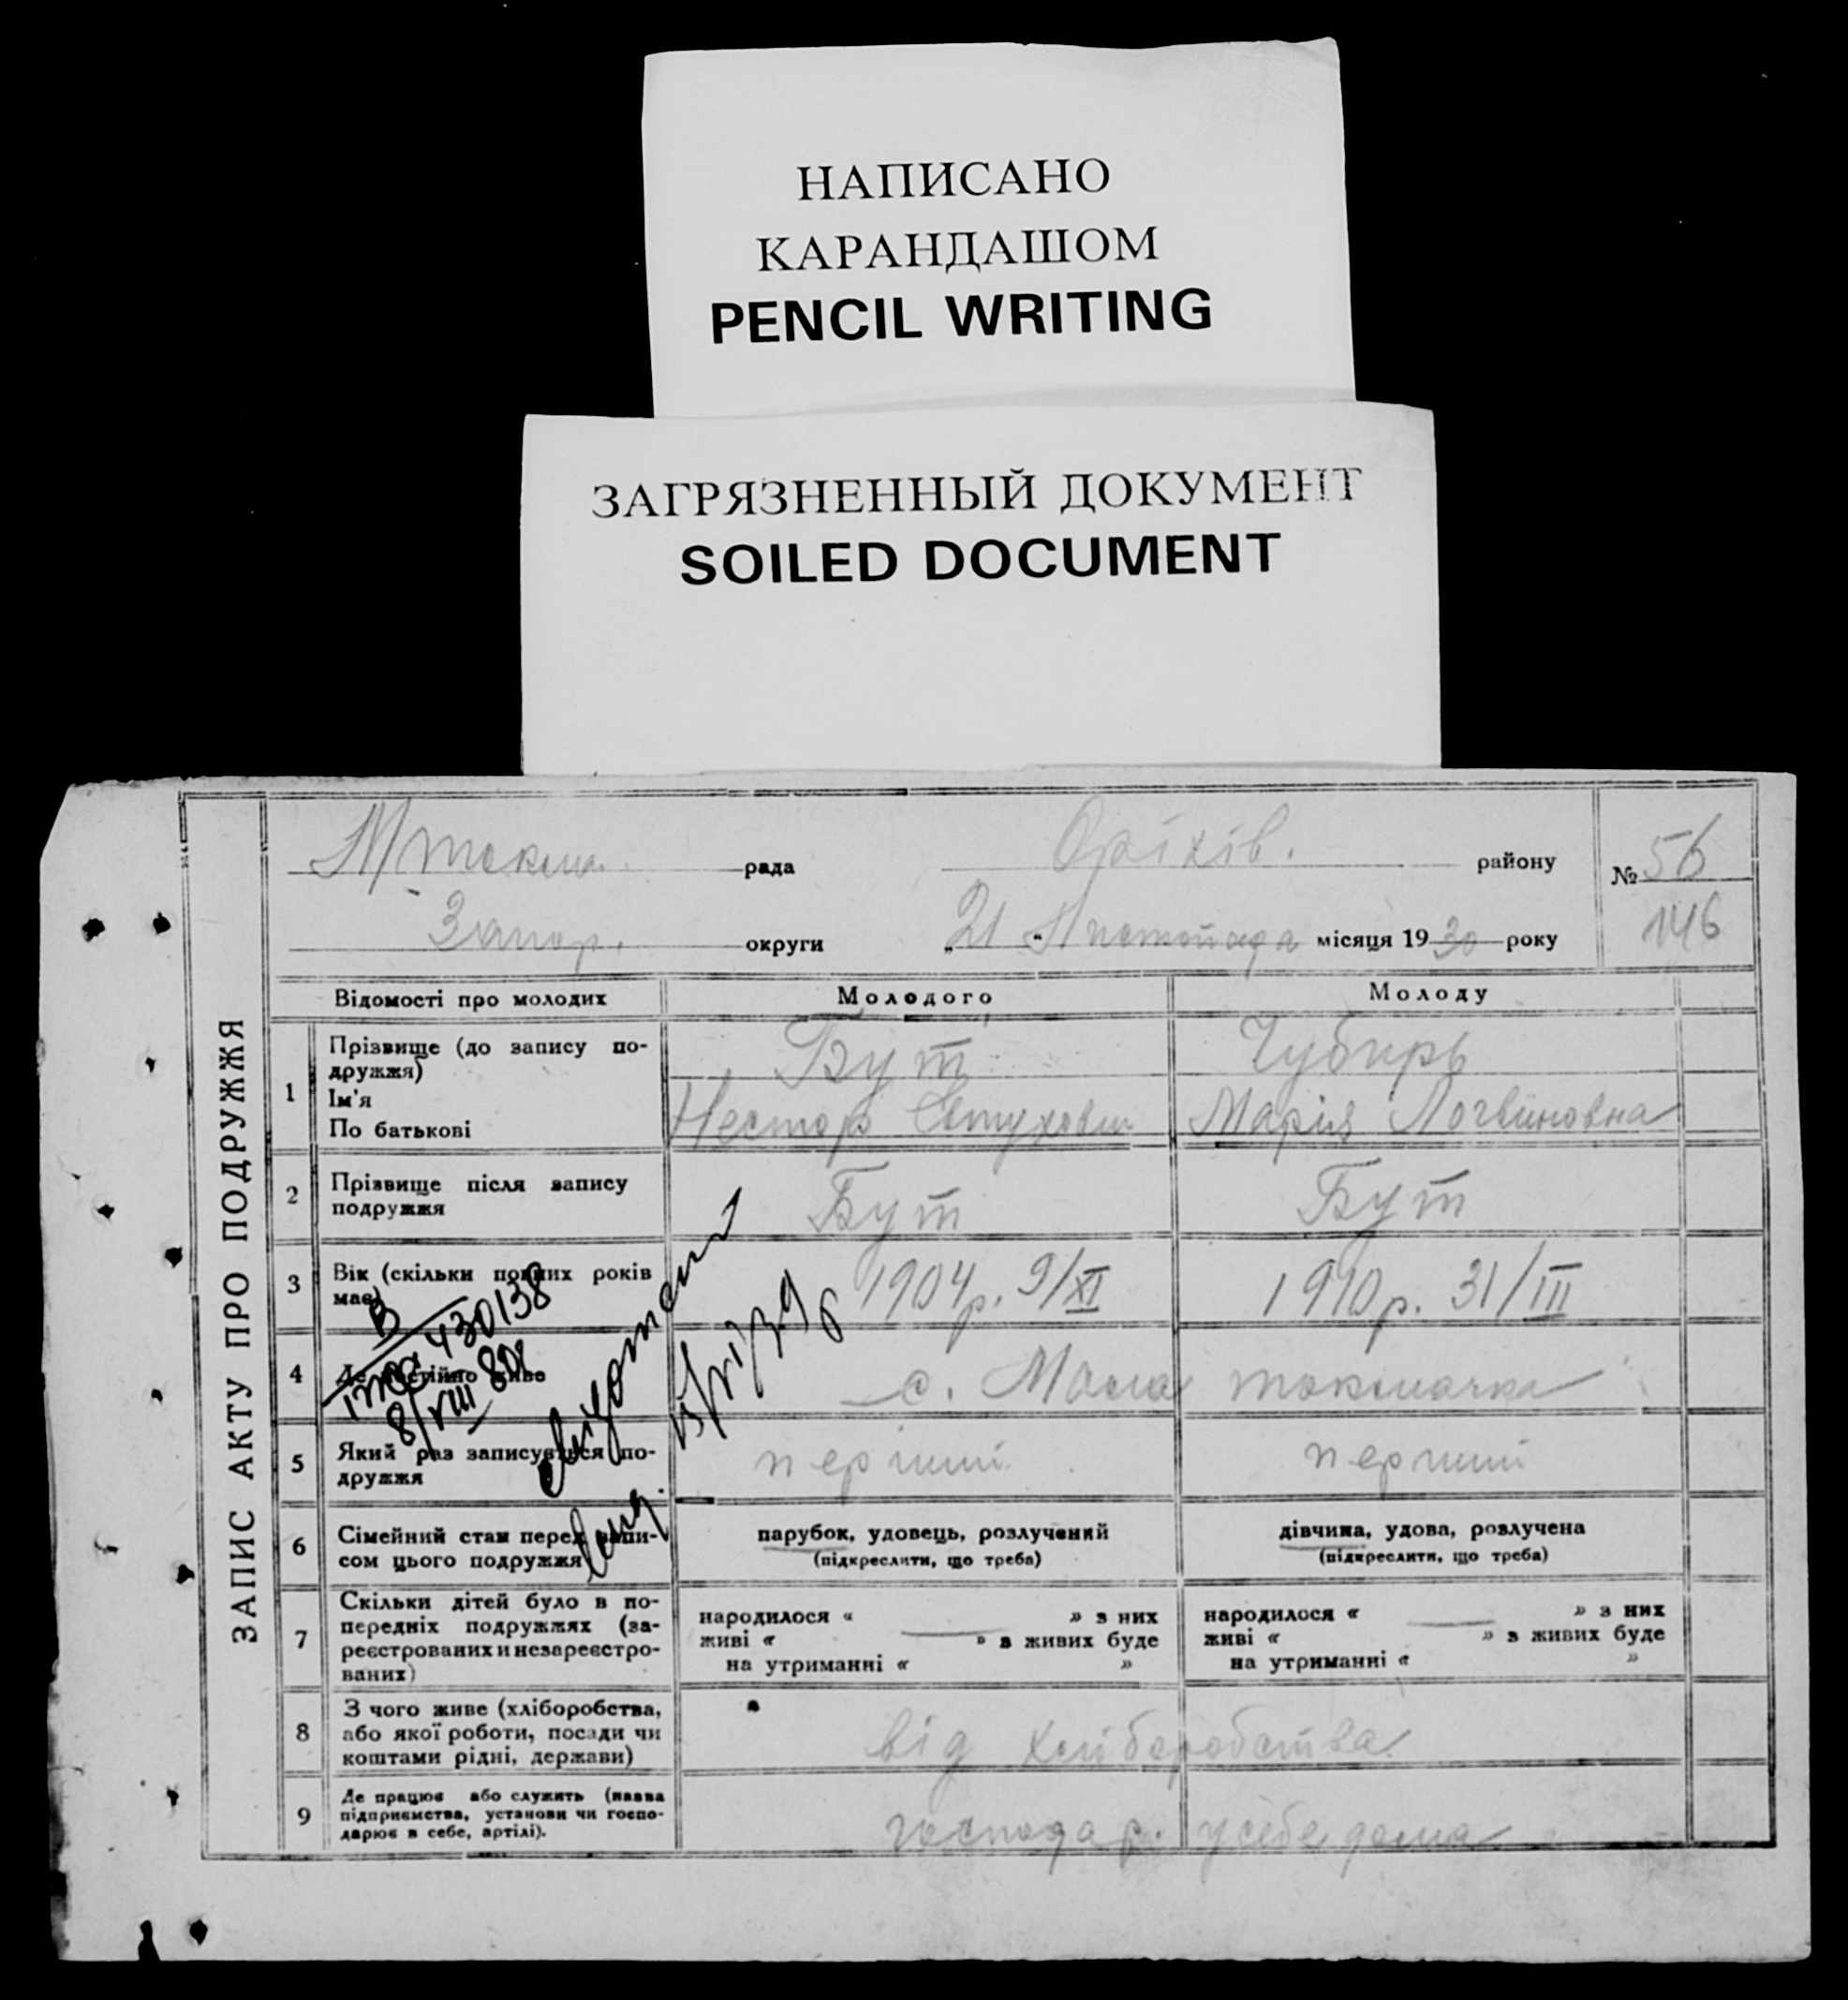 НАПИСАНО
КАРАНДАШОМ
PENCIL WRITING
ЗАГРЯЗНЕННЫЙ ДОКУМЕНТ
SOILED DOCUMENT
ЗАПИС АКТУ ПРО ПОДРУЖЖЯ
М токма. рада Оріхів. району № 56
Запор. округи „21 “ Листопада місяця 1930 року 146
Відомості про молодих Молодого Молоду
1 Прізвище (до запису по-
дружжя) Бут Чубирь
Ім'я
По батькові Нестор Марія Логвиновна
2 Прізвище після запису
подружжя Бут Бут
3 Вік (скільки повних років
має) 1904 р. 9/XI 1910 р. 31/III
В
430138
8/VIII 80
4 Де постійно живе с. Мала токмачка
5 Який раз записується по-
дружжя перший перший
6 Сімейний стан перед запи-
сом цього подружжя
парубок, удовець, розлучений дівчина, удова, розлучена
(підкреслити, що треба) (підкреслити, що треба)
7 Скільки дітей було в по-
передніх подружжях (за-
реєстрованих и незареєстро-
ваних)
народилося « » з них народилося « » з них
живі « » з живих буде живі « » з живих буде
на утриманні « » на утриманні « »
8 З чого живе (хліборобства,
або якої роботи, посади чи
коштами рідні, держави) від хліборобства
9 Де працює або служить (назва
підприємства, установи чи госпо-
дарює в себе, артілі). господар. у себе дома